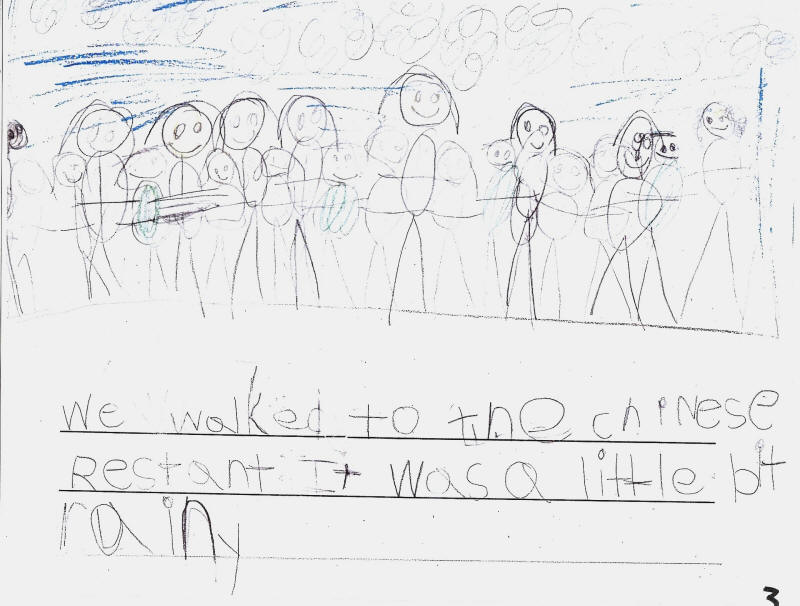 We walked to the chinese
Restant It was a little bit
rainy
3